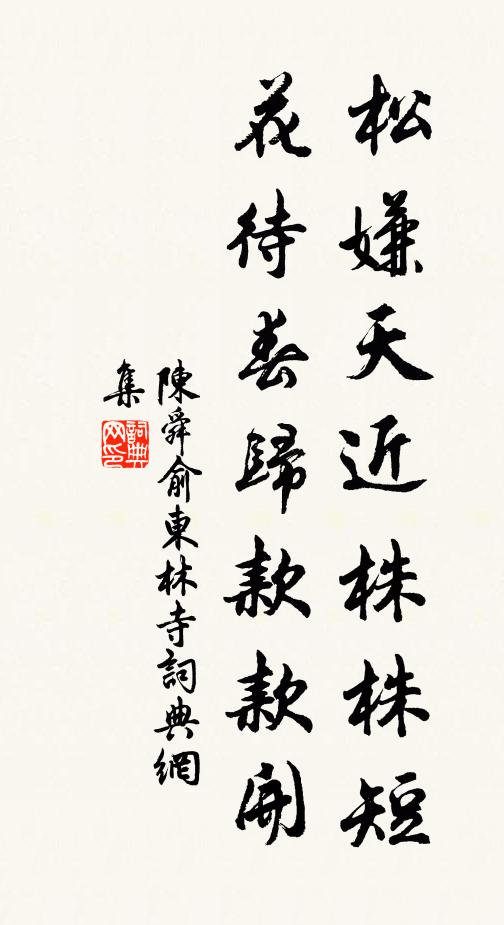 松嫌天近株株短
花待春歸款款開
陳舜俞東林寺詞典網
集
詞典
网印